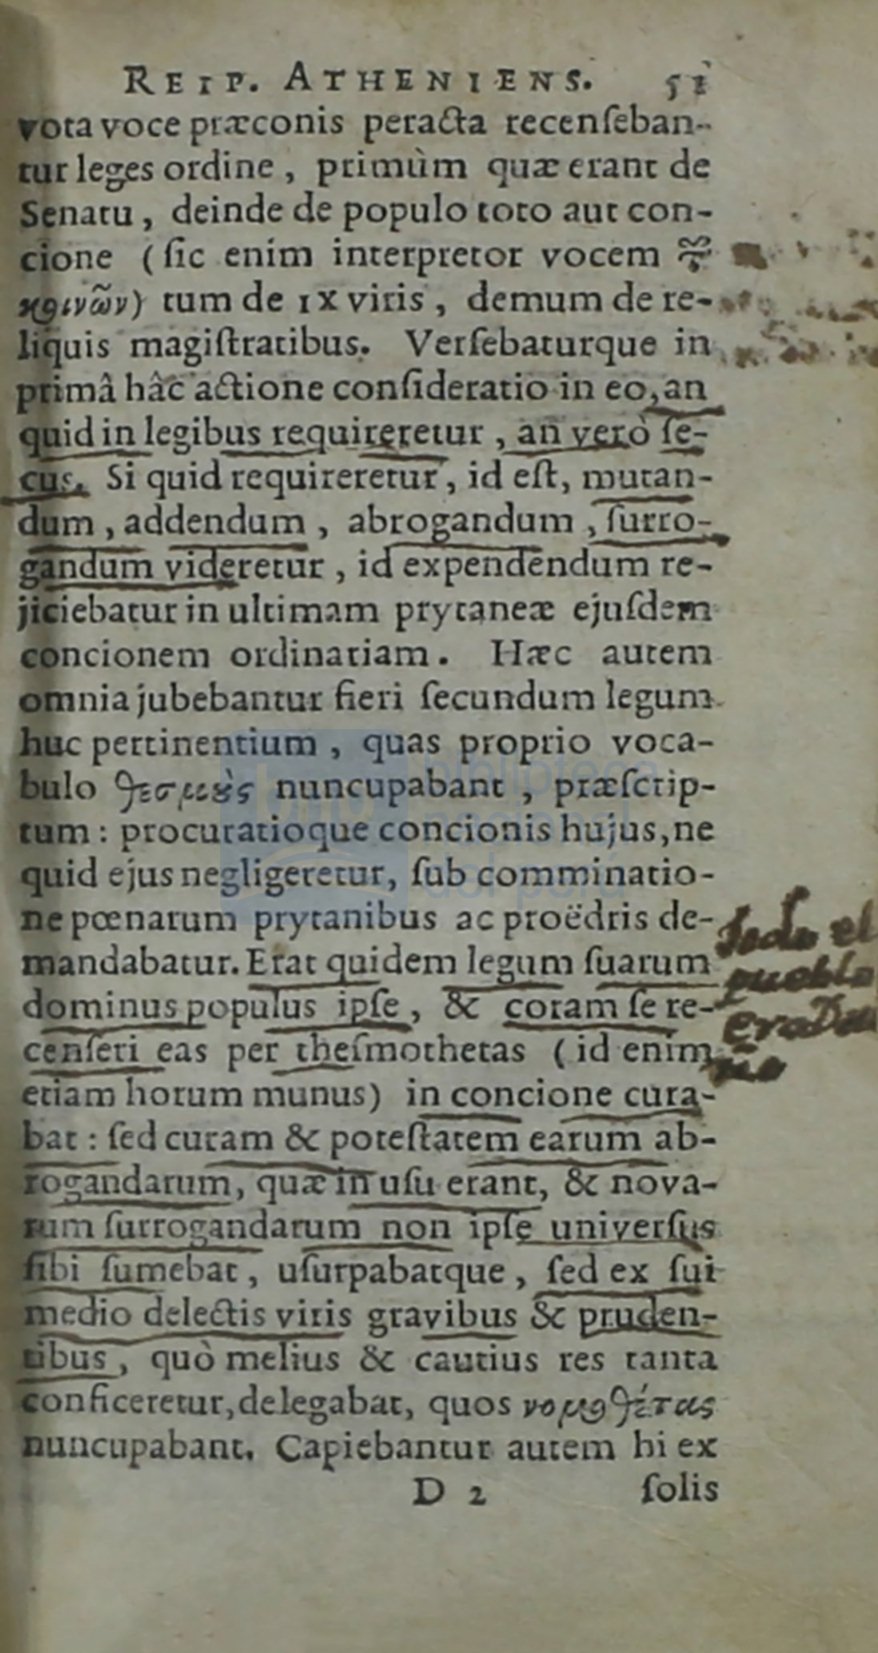 REIP. ATHENIENS. 51
vota voce præconis peracta recenſeban-
tur leges ordine, primùm quæ erant de
Senatu, deinde de populo toto aut con-
cione (ſic enim interpretor vocem τῶ
κοινῶν) tum de IX viris, demum de re-
liquis magiſtratibus. Verſebaturque in
primâ hâc actione conſideratio in eo, an
quid in legibus requireretur, an verò ſe-
cus. Si quid requireretur, id eſt, mutan-
dum, addendum, abrogandum, ſurro-
gandum videretur, id expendendum re-
jiciebatur in ultimam prytaneæ ejuſdem
concionem ordinariam. Hæc autem
omnia jubebantur fieri ſecundum legum
huc pertinentium, quas proprio voca-
bulo θεσμοὺς nuncupabant, præſcrip-
tum: procuratioque concionis hujus, ne
quid ejus negligeretur, ſub comminatio-
ne pœnarum prytanibus ac proëdris de-
mandabatur. Erat quidem legum ſuarum
dominus populus ipſe, & coram ſe re-
cenſeri eas per theſmothetas (id enim
etiam horum munus) in concione cura-
bat: ſed curam & poteſtatem earum ab-
rogandarum, quæ in uſu erant, & nova-
rum ſurrogandarum non ipſe univerſus
ſibi ſumebat, uſurpabatque, ſed ex ſui
medio delectis viris gravibus & pruden-
tibus, quò melius & cautius res tanta
conficeretur, delegabat, quos νομοθέτας
nuncupabant. Capiebantur autem hi ex
D 2 ſolis
todo el
pueblo
era